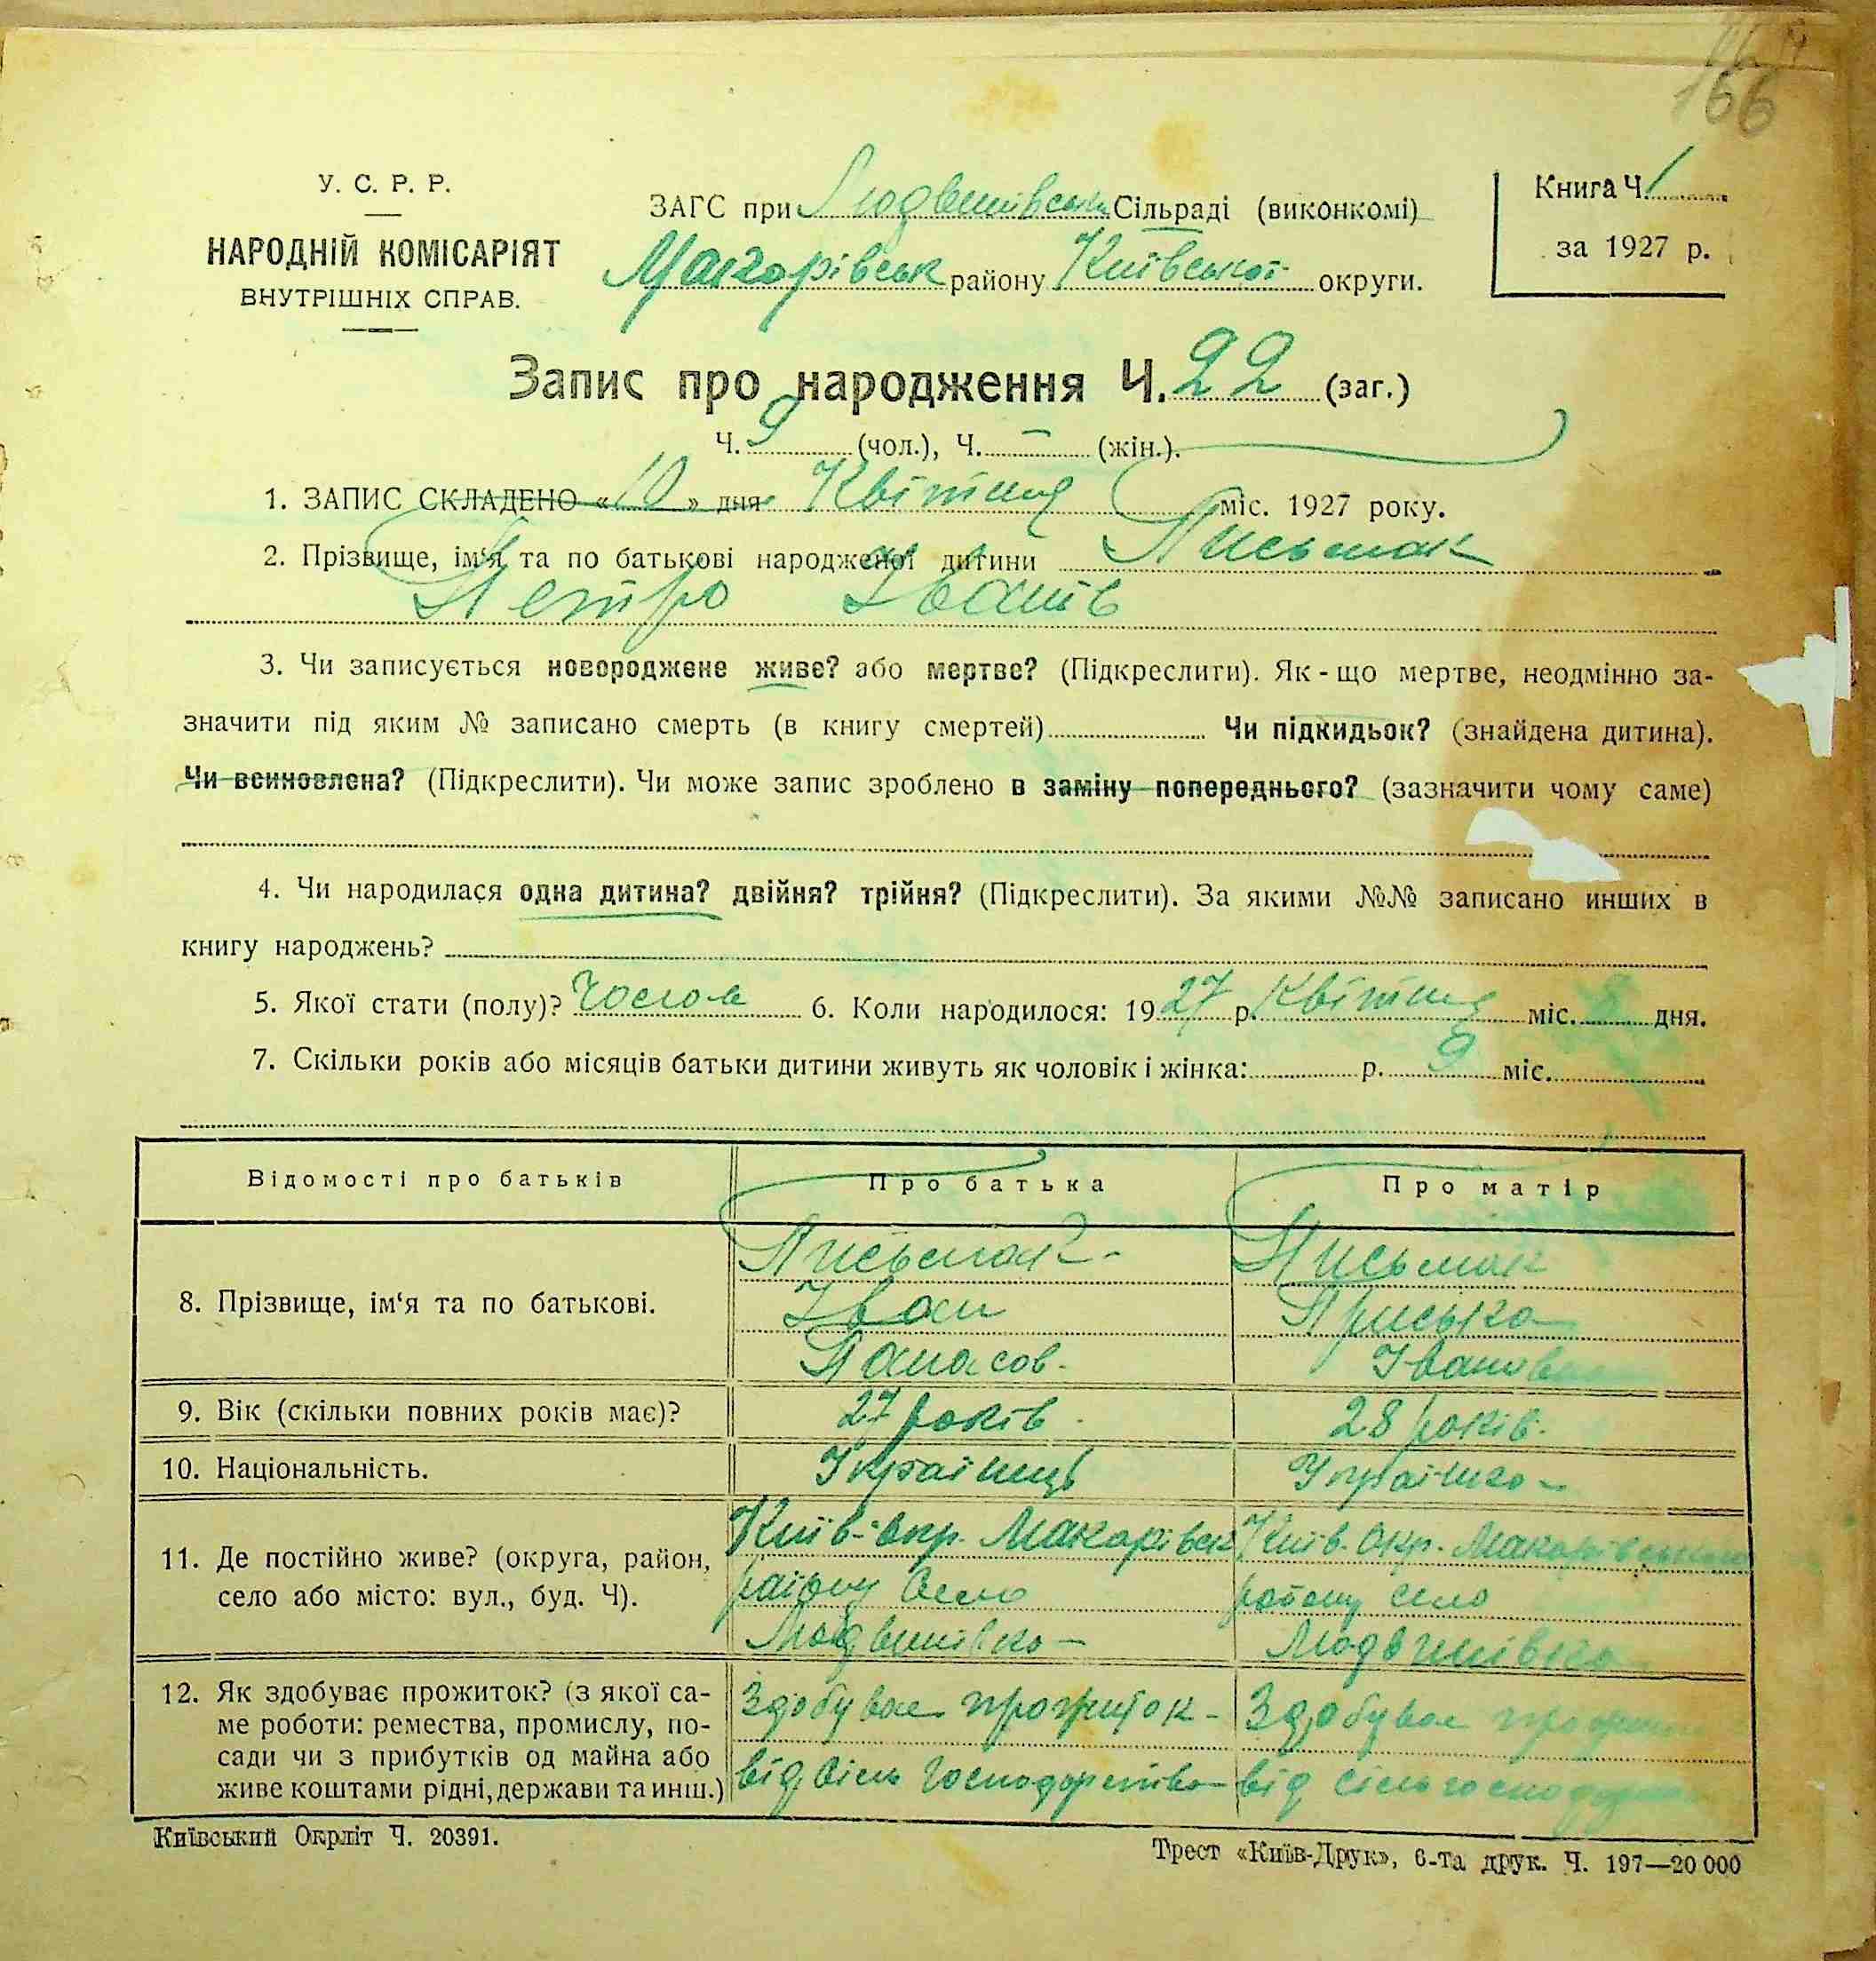 166
У. С. Р. Р.
НАРОДНІЙ КОМІСАРІЯТ
ВНУТРІШНІХ СПРАВ.
ЗАГС при Людвинівськ Сільраді (виконкомі)
Макарівськ району Київської округи.
Книга Ч. 1
за 1927 р.
Запис про народження Ч. 22 (заг.)
Ч. 9 (чол.), Ч. – (жін.).
1. ЗАПИС СКЛАДЕНО «10» дня Квітня міс. 1927 року.
2. Прізвище, ім‘я та по батькові народженої дитини Письмак
Петро Іванів
3. Чи записується новороджене живе? або мертве? (Підкреслити). Як - що мертве, неодмінно за-
значити під яким № записано смерть (в книгу смертей) Чи підкидьок? (знайдена дитина).
Чи всиновлена? (Підкреслити). Чи може запис зроблено в заміну попереднього? (зазначити чому саме)
4. Чи народилася одна дитина? двійня? трійня? (Підкреслити). За якими №№ записано инших в
книгу народжень?
5. Якої стати (полу)? Чолов 6. Коли народилося: 1927 р. Квітня міс. 8 дня.
7. Скільки років або місяців батьки дитини живуть як чоловік і жінка: р. 9 міс.
Відомості про батьків Про батька Про матір
8. Прізвище, ім‘я та по батькові.
Письмак
Іван
Панасов.
Письмак
Приська
Іванов
9. Вік (скільки повних років має)? 27 років 28 років.
10. Національність. Українець Українка
11. Де постійно живе? (округа, район,
село або місто: вул., буд. Ч).
Київ. окр. Макарівськ
району село
Людвинівка
Київ. Окр. Макарівського
району село
Людвинівка
12. Як здобуває прожиток? (з якої са-
ме роботи: ремества, промислу, по-
сади чи з прибутків од майна або
живе коштами рідні, держави та инш.)
Здобувае прожиток
від сіль господарства
Здобувае
від сіль
Київський Окрліт Ч. 20391.
Трест «Київ-Друк», 6-та друк. Ч. 197—20 000